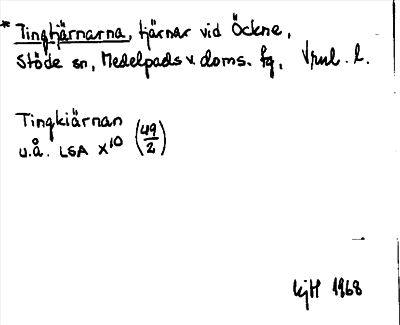 * Tingtjärnarna, tjärnar vid Öckne,
Stöde sn, Medelpads v. doms. fg, Vnnl. l.
Tingkiärnan
u.å. LSA X10 (49/2)
KjH 1968